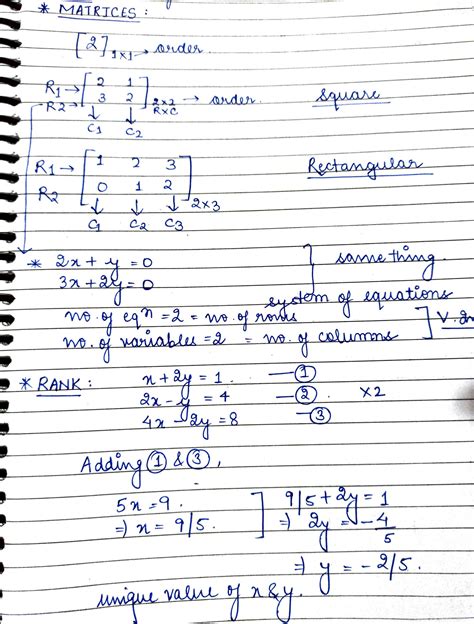 * MATRICES :
[2] 1×1 → order.
R1 → [ 2 1
R2 → 3 2 ] 2×2 R×C → order. Square
C1 C2
R1 → [ 1 2 3 Rectangular
R2 0 1 2 ] 2×3
C1 C2 C3
* 2x + y = 0 ] same thing.
3x + 2y = 0
system of equations
no. of eqⁿ = 2 = no. of rows
no. of variables = 2 = no. of columns ] V.
* RANK : x + 2y = 1. — ①
2x - y = 4 — ② ×2
4x - 2y = 8 — ③
Adding ① & ③,
5x = 9. ] 9/5 + 2y = 1
⇒ x = 9/5. ⇒ 2y = -4/5
⇒ y = -2/5.
unique value of x & y.